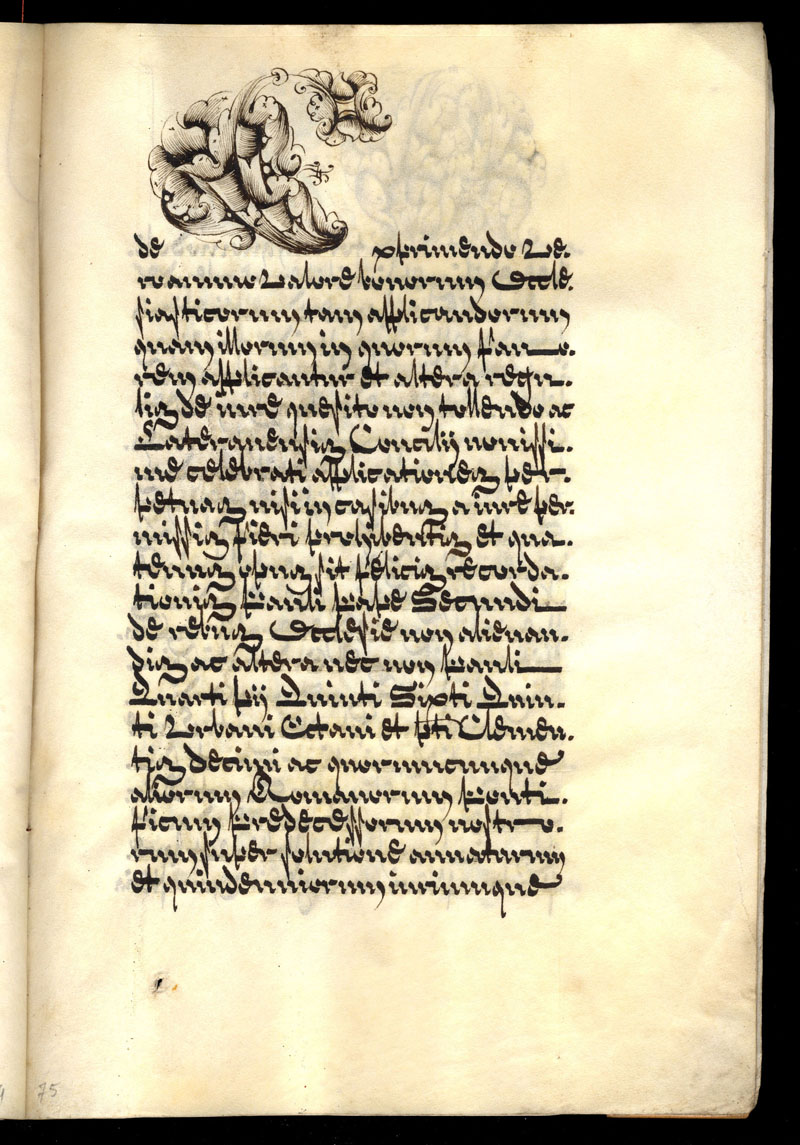 de Exprimendo Ve-
ro annuo Valore bonorum Eccle-
siasticorum tam applicandorum
quam illorum in quorum favo-
rem applicantur et altera regu-
lis de iure quesito non tollendo ac
Lateranensis Concilij novissi-
me celebrati applicationes per-
petuas nisi in casibus a iure per-
missis fieri prohibentis et qua-
tenus opus sit felicis recorda-
tionis Pauli Pape Secundi
de rebus Ecclesie non alienan-
dis ac altera nec non Pauli
Quarti Pij Quinti Sixti Quin-
ti Urbani Octavi et pti Clemen-
tis decimi ac quorumcunque
aliorum Romanorum Ponti-
ficum Predecessorum nostro-
rum super solutione annatarum
et quindenniorum iuriumque
75